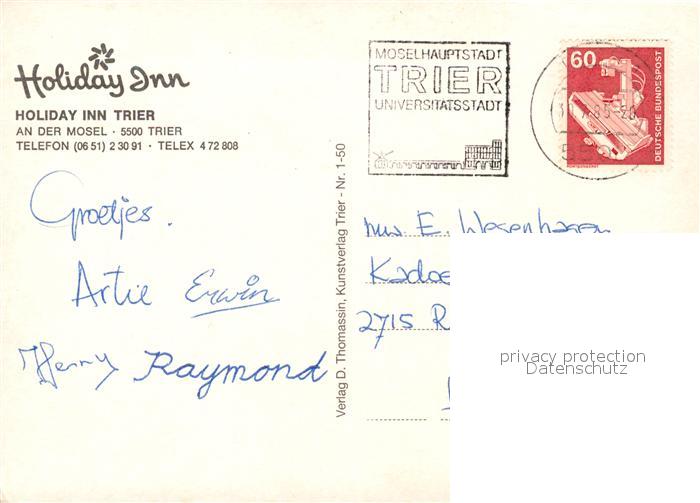 Holiday Inn
HOLIDAY INN TRIER
AN DER MOSEL · 5500 TRIER
TELEFON (06 51) 2 30 91 · TELEX 4 72 808
MOSELHAUPTSTADT
TRIER
UNIVERSITÄTSSTADT
60
DEUTSCHE BUNDESPOST
Groetjes.
Artie Erwin
Henny Raymond
Verlag D. Thomassin, Kunstverlag Trier - Nr. 1-50
mw E. Wegenhagen
Kadoe
2715 R
privacy protection
Datenschutz